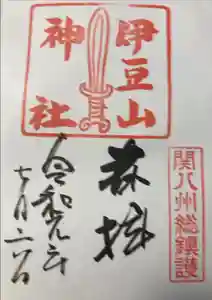 伊豆山
神社
関八州総鎮護
奉拝
令和元年
七月二八日